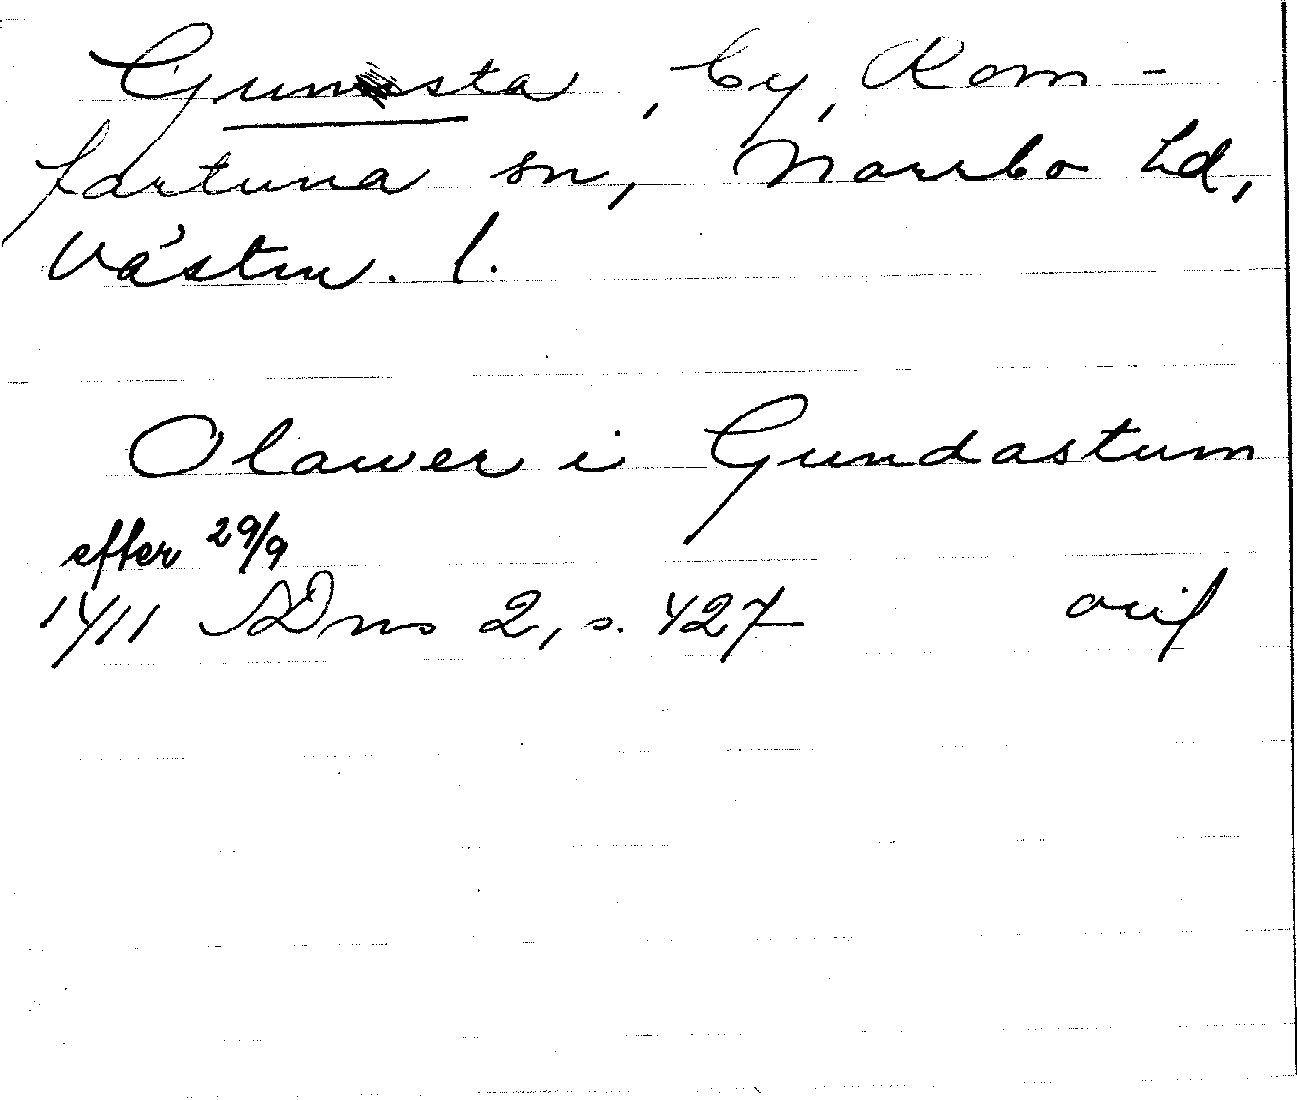 Gunsta, by, Rom-
fartuna sn, Norrbo hd,
Västm. l.
Olawer i Gundastum
efter 29/9
1411 SD ns 2, s. 427 orig